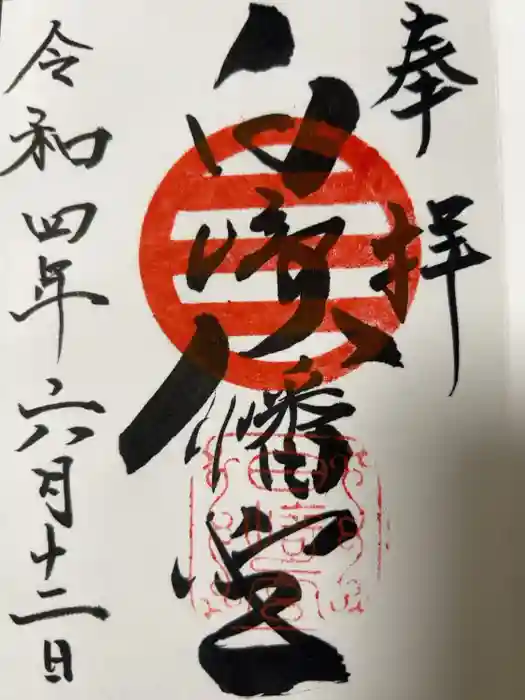 奉拝
白崎八幡宮
令和四年六月十二日